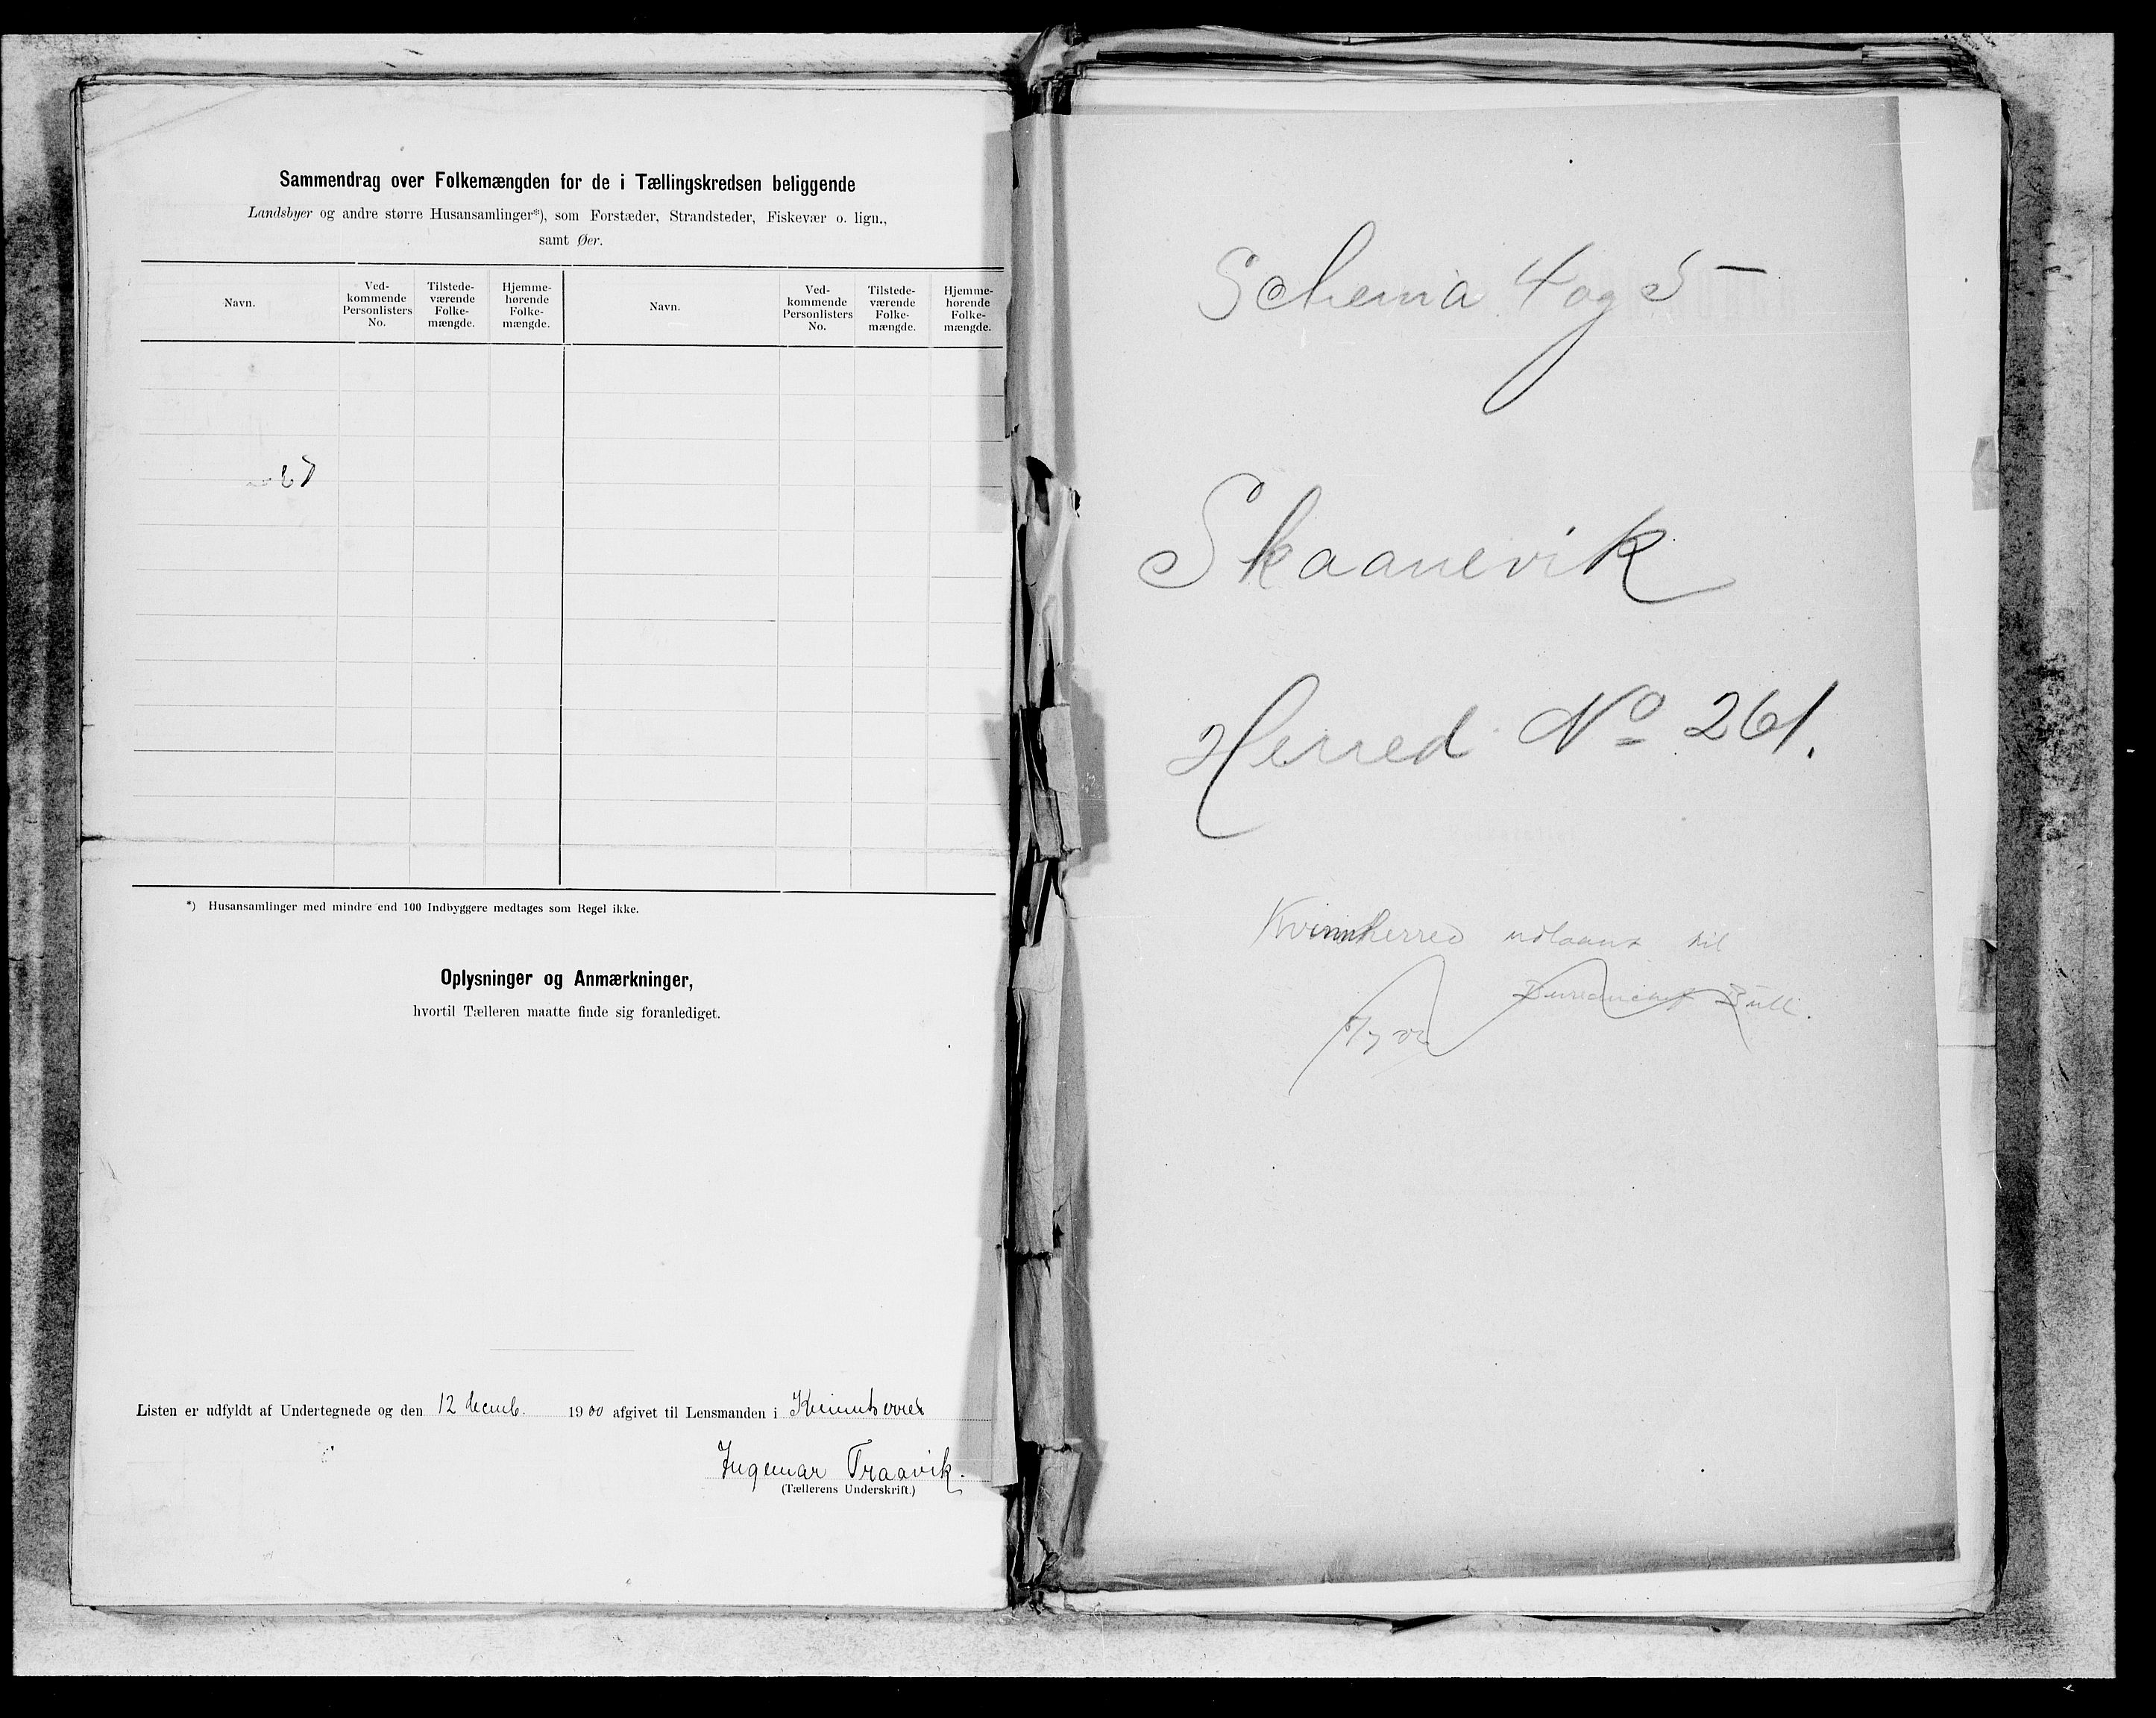 Sammendrag over Folkemængden for de i Tællingskredsen beliggende
Landsbyer og andre større Husansamlinger*), som Forstæder, Strandsteder, Fiskevær o. lign.,
samt Øer.
Navn.
Ved-
kommende
Personlisters
No.
Tilstede-
værende
Folke-
mængde.
Hjemme-
hørende
Folke-
mængde.
Navn.
Ved-
kommende
Personlisters
No.
Tilstede-
værende
Folke-
mængde.
Hjemme-
hørende
Folke-
mængde.
*) Husansamlinger med mindre end 100 Indbyggere medtages som Regel ikke.
Oplysninger og Anmærkninger,
hvortil Tælleren maatte finde sig foranlediget.
Listen er udfyldt af Undertegnede og den 12 decemb. 1900 afgivet til Lensmanden i Kvinnherred
Ingemar Traavik.
(Tællerens Underskrift.)
Schema 4 og 5
Skaanevik
Herred No 261.
Kvinnherred udlaant til
Bull.